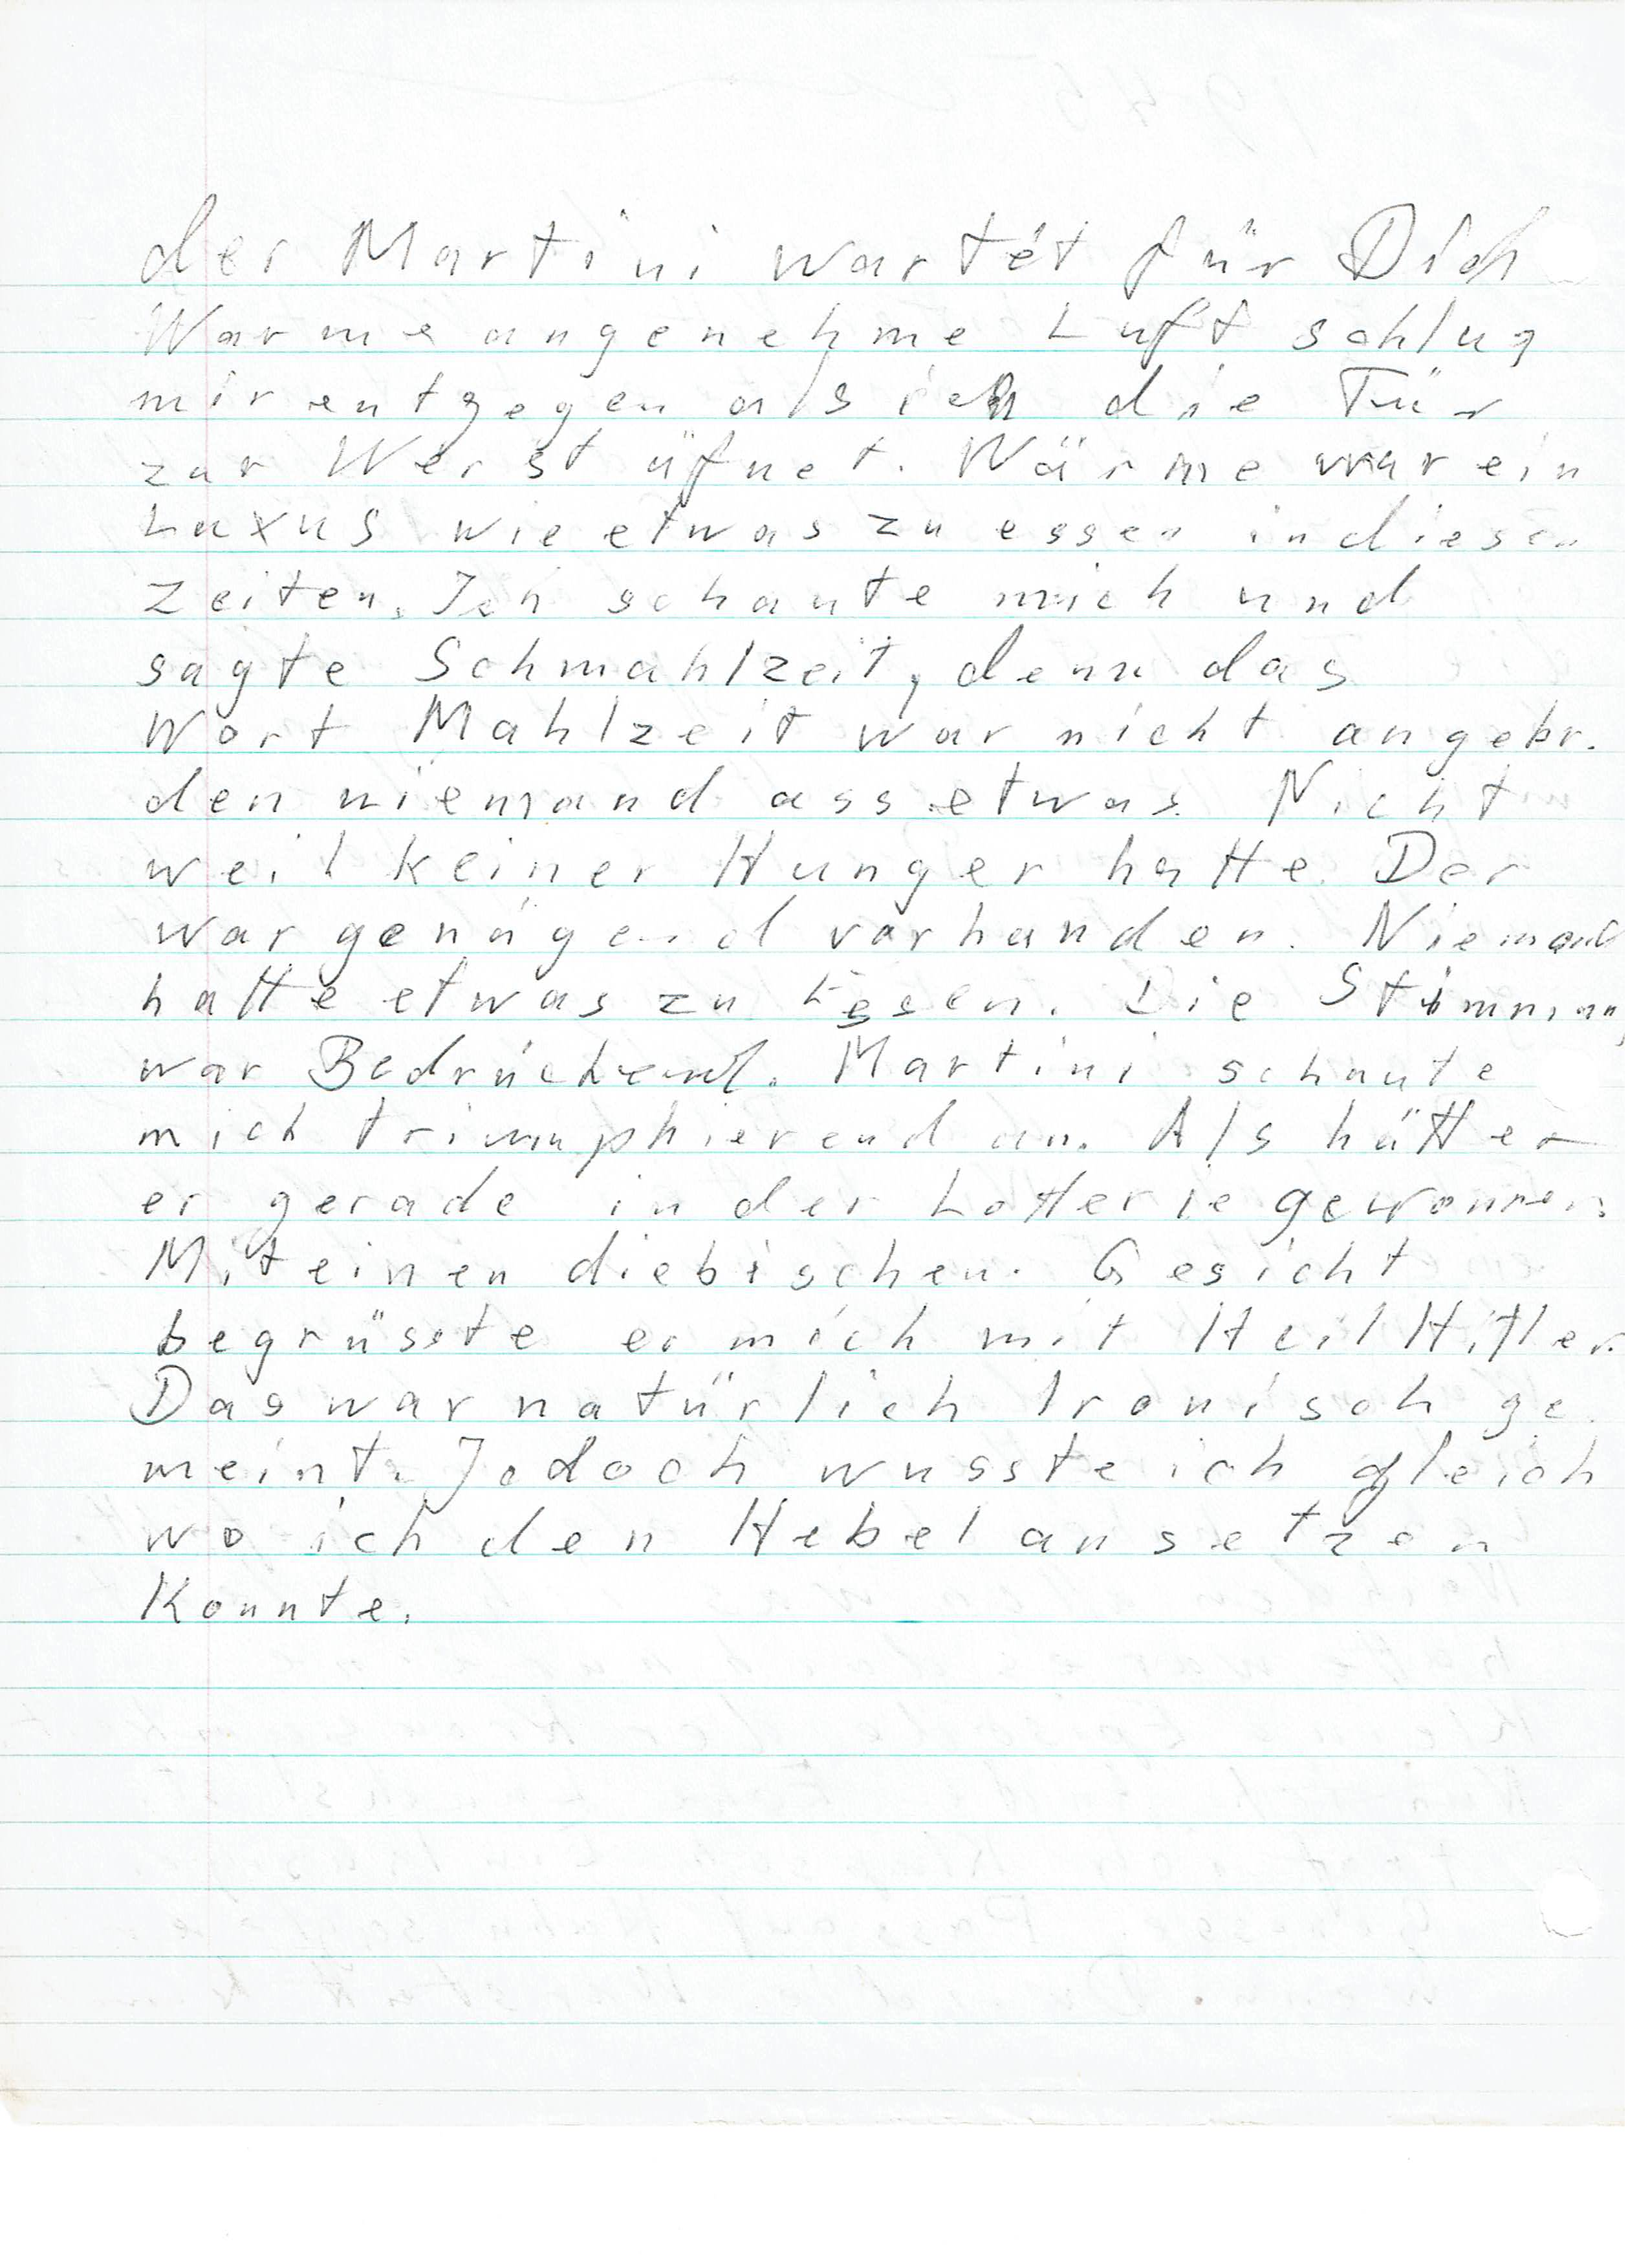 der Martini wartet für Dich
Warme angenehme Luft schlug
mir entgegen als ich die Tür
zur Werst üfnet. Wärme war ein
Luxus wie etwas zu essen in diesen
Zeiten. Ich schaute mich und
sagte Schmahlzeit, denn das
Wort Mahlzeit war nicht angebr.
den niemand ass etwas. Nicht
weil keiner Hunger hatte. Der
war genügend vorhanden. Niemand
hatte etwas zu Essen. Die Stimmung
war Bedrückend. Martini schaute
mich triumphierend an. Als hätte
er gerade in der Lotterie gewonnen.
Mit einen diebischen Gesicht
begrüsste er mich mit Heil Hitler.
Das war natürlich Ironisch ge
meint. Jedoch wusste ich gleich
wo ich den Hebel ansetzen
Konnte.